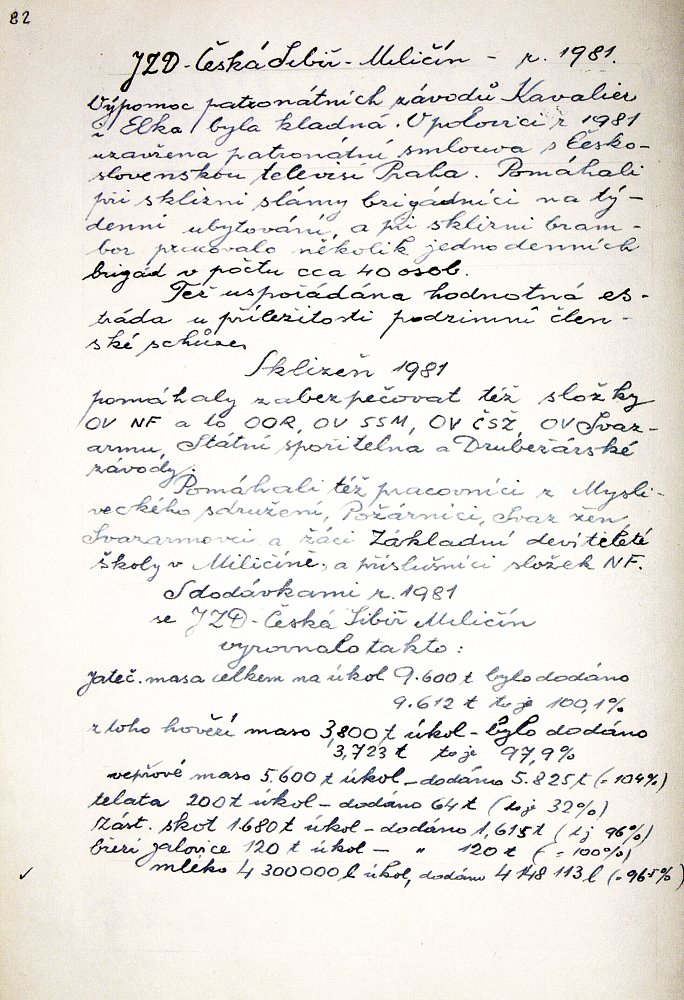 82
JZD - Česká Sibiř - Miličín - r. 1981.
Výpomoc patronátních závodů Kavalier
i Elka byla kladná. V polovici r 1981
uzavřena patronátní smlouva s Česko-
slovenskou televisi Praha. Pomáhali
při sklizni slámy brigádníci na tý-
denní ubytování, a při sklizni bram-
bor pracovalo několik jednodenních
brigád v počtu cca 40 osob.
Též uspořádána hodnotná es-
tráda u příležitosti podzimní člen-
ské schůze.
Sklizeň 1981
pomáhaly zabezpečovat též složky
OV NF a to OOR, OV SSM, OV ČSŽ, OV Svaz-
armu, Státní spořitelna a Drubežárské
závody.
Pomáhali též pracovníci z Mysli-
veckého sdružení, Požárníci, Svaz žen,
Svazarmovci a žáci Základní devítileté
školy v Miličíně, a příslušníci složek NF.
S dodávkami r. 1981
se JZD - Česká Sibiř Miličín
vyrovnalo takto:
Jateč. masa celkem na úkol 9.600 t bylo dodáno
9.612 t to je 100,1%
z toho hovězí maso 3,800 t úkol - bylo dodáno
3,723 t to je 97,9%
vepřové maso 5.600 t úkol - dodáno 5.825 t (= 104%)
telata 200 t úkol - dodáno 64 t (to j 32%)
zást. skot 1680 t úkol - dodáno 1,615 t (tj 96%)
březí jalovice 120 t úkol - " 120 t (= 100%)
mléko 4 300000 l úkol, dodáno 4 148 113 l (= 96,5%)